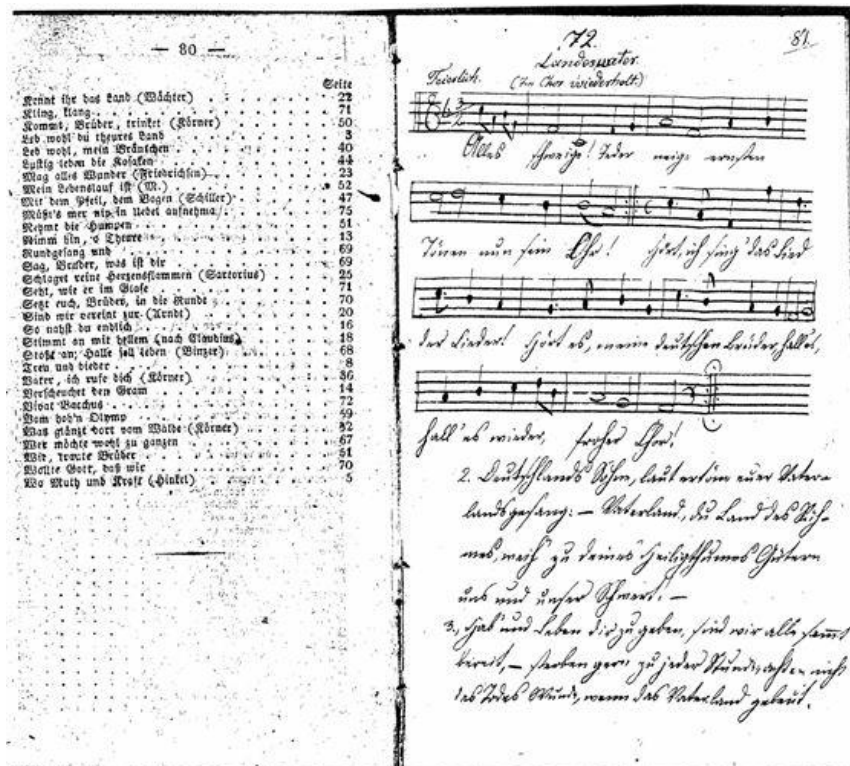 — 80 —
Seite
Kennt ihr das Land (Wächter) 22
Kling, klang 71
Kommt, Brüder, trinket (Körner) 50
Leb wohl du theures Land 3
Leb wohl, mein Bräutchen 40
Lustig leben die Kosaken 44
Mag alles Wunder (Friedrichsen) 23
Mein Lebenslauf ist (M.) 52
Mit dem Pfeil, dem Bogen (Schiller) 47
Müßt's mer nip in Uebel aufnehma 75
Nehmt die Humpen 51
Nimm hin, o Theure 13
Rundgesang und 69
Sag, Bruder, was ist dir 69
Schlaget reine Herzensflammen (Sartorius) 25
Seht, wie er im Glase 71
Setzt euch, Brüder, in die Runde 70
Sind wir vereint zur (Arndt) 20
So nahst du endlich 16
Stimmt an mit hellem (nach Claudius) 18
Stoßt an; Halle soll leben (Binzer) 68
Treu und bieder 8
Vater, ich rufe dich (Körner) 36
Verscheuchet den Gram 14
Vivat Bacchus 72
Vom hoh'n Olymp 59
Was glänzt dort vom Walde (Körner) 32
Wer möchte wohl zu ganzen 67
Wir, traute Brüder 51
Wollte Gott, daß wir 70
Wo Muth und Kraft (Hinkel) 5
72. 81.
Landesvater.
Feierlich. (Im Chor wiederholt.)
Alles schweige! Jeder neige ernsten
Tönen nun sein Ohr! Hört, ich sing' das Lied
der Lieder! Hört es, meine deutschen Brüder, hall' es,
hall' es wieder, froher Chor!
2. Deutschlands Söhne, laut ertöne euer Vater-
landsgesang: — Vaterland, du Land des Ruh-
mes, weih' zu deines Heiligthumes Hütern
uns und unser Schwert! —
3., Hab' und Leben dir zu geben, sind wir alle sammt
bereit, — sterben gern zu jeder Stunde, achten nicht
des Todes Wunde, wenn das Vaterland gebeut.